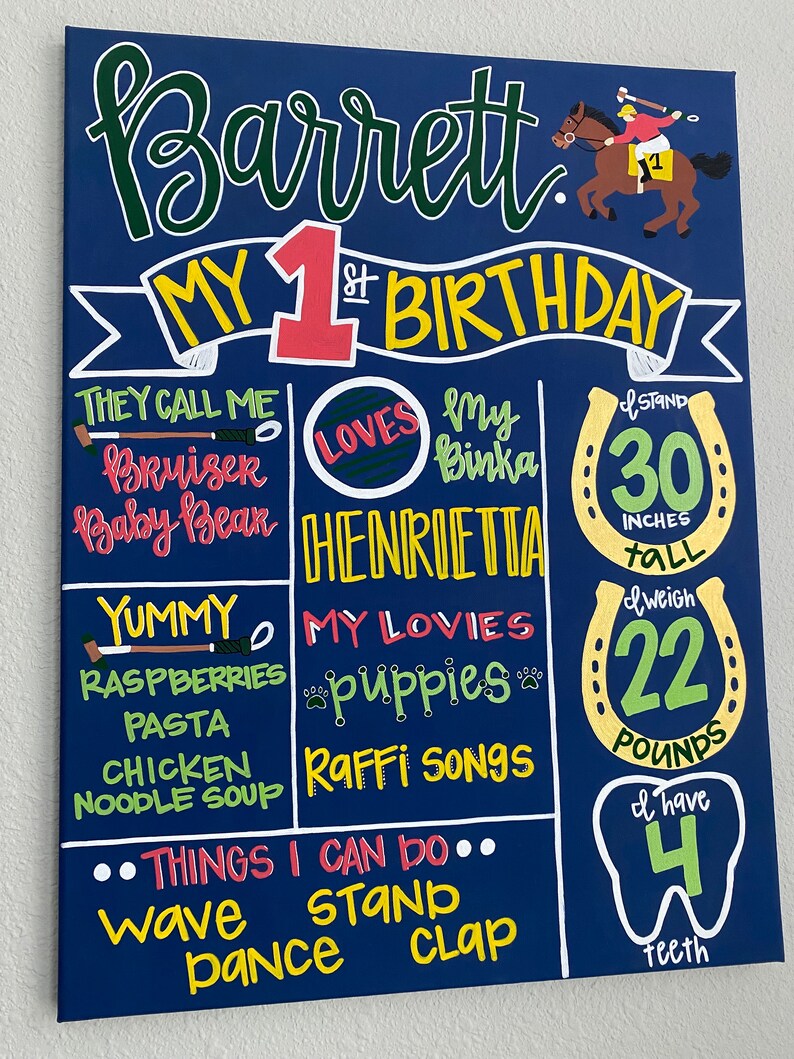 Barrett.
1
MY 1st BIRTHDAY
THEY CALL ME
Bruiser
Baby Bear
YUMMY
RASPBERRIES
PASTA
CHICKEN
NOODLE SOUP
LOVES
My
Binka
HENRIETTA
MY LOVIES
puppies
Raffi SONGS
I STAND
30
INCHES
tall
I weigh
22
POUNDS
I have
4
teeth
THINGS I CAN DO
wave STAND
DANCE CLAP